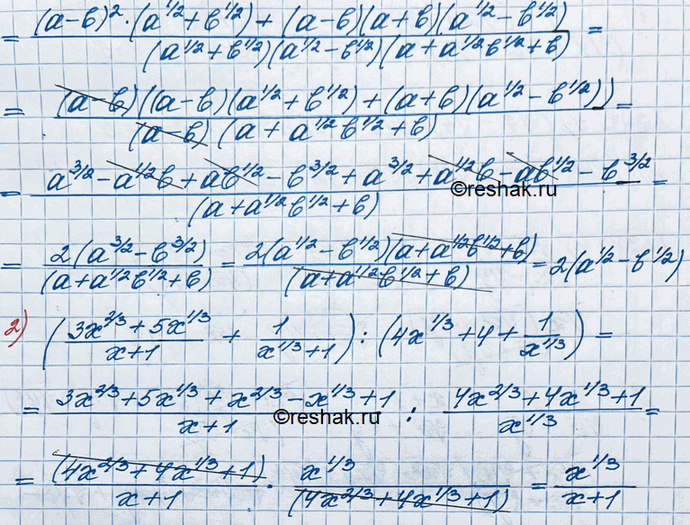 = ((a-в)²·(a^1/2+в^1/2)+(a-в)(a+в)(a^1/2-в^1/2))/((a^1/2+в^1/2)(a^1/2-в^1/2)(a+a^1/2в^1/2+в)) =
= ((a-в)((a-в)(a^1/2+в^1/2)+(a+в)(a^1/2-в^1/2)))/((a-в)(a+a^1/2в^1/2+в)) =
= (a^3/2-a^1/2в+aв^1/2-в^3/2+a^3/2+a^1/2в-aв^1/2-в^3/2)/(a+a^1/2в^1/2+в) =
©reshak.ru
= 2(a^3/2-в^3/2)/(a+a^1/2в^1/2+в) = 2(a^1/2-в^1/2)(a+a^1/2в^1/2+в)/(a+a^1/2в^1/2+в) = 2(a^1/2-в^1/2)
2) ((3x^2/3+5x^1/3)/(x+1) + 1/(x^1/3+1)) : (4x^1/3+4+1/x^1/3) =
= (3x^2/3+5x^1/3+x^2/3-x^1/3+1)/(x+1) : (4x^2/3+4x^1/3+1)/x^1/3 =
©reshak.ru
= (4x^2/3+4x^1/3+1)/(x+1) · x^1/3/(4x^2/3+4x^1/3+1) = x^1/3/(x+1)